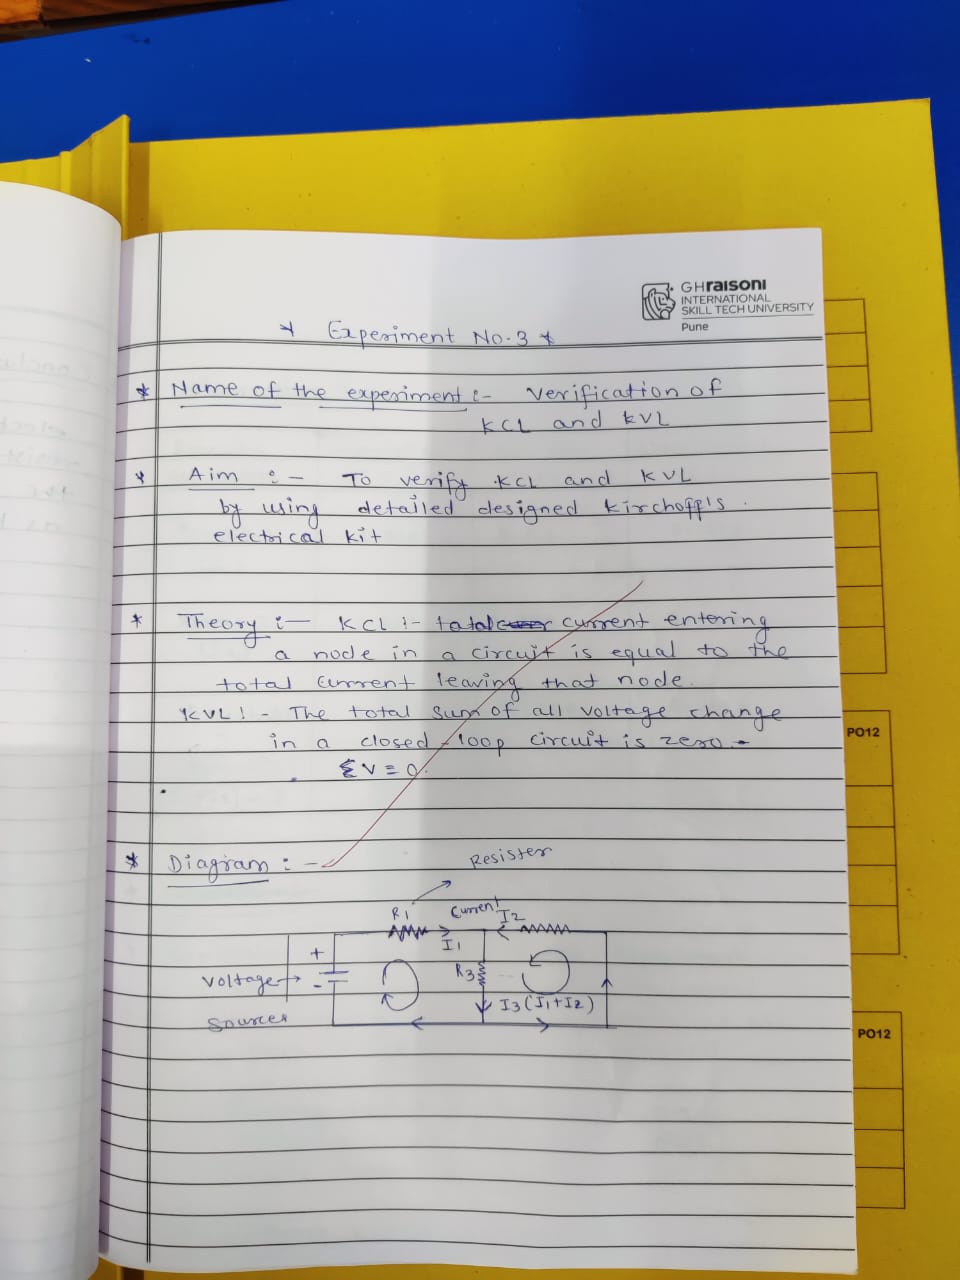 GHraisoni
INTERNATIONAL
SKILL TECH UNIVERSITY
Pune
* Experiment No.3 *
* Name of the experiment :- Verification of
KCL and KVL
* Aim :- To verify KCL and KVL
by using detailed designed Kirchoff's
electrical kit
* Theory :- KCL :- tatal current entering
a node in a circuit is equal to the
total current leaving that node.
KVL :- The total sum of all voltage change
in a closed-loop circuit is zero.
ΣV=0.
* Diagram :-
Resister
R1
Current
I2
I1
+
-
Voltage
Sources
R3
I3 (I1+I2)
PO12
PO12